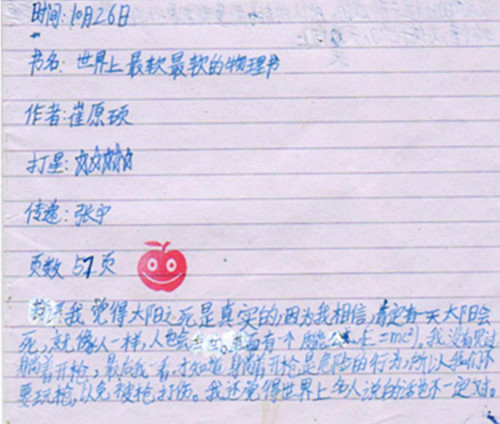 时间:10月26日
书名:世界上最软最软的物理书
作者:崔原硕
打星:☆☆☆☆☆
传递:张宇
页数 57页
我觉得太阳之死是真实的,因为我相信,肯定有一天太阳会
死,就像人一样,人也会 面有一个 E=mc²),我没有见过
躺着开枪,最后我一看,才知道躺着开枪是危险的行为,所以我们不
要玩枪,以免被枪打伤。我还觉得世界上名人说的话也不一定对。